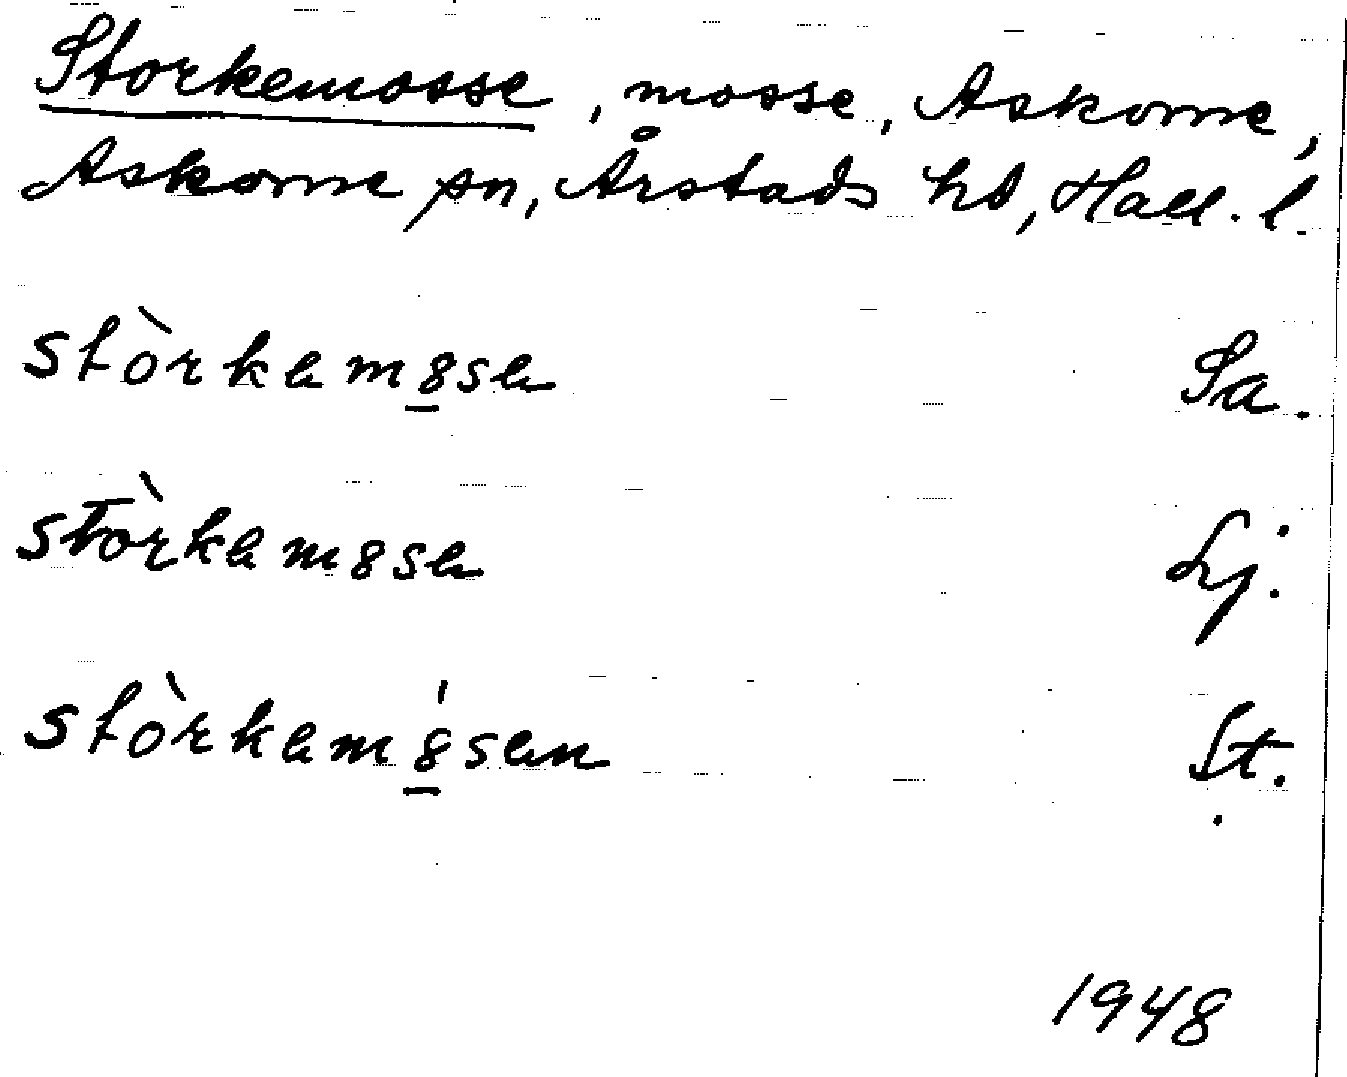 Storkemosse, mosse, Askome,
Askome sn, Årstads hd, Hall. l.
stòrkam8sa Sa.
stòrkam8sa Lj.
stòrkam8́san St.
1948